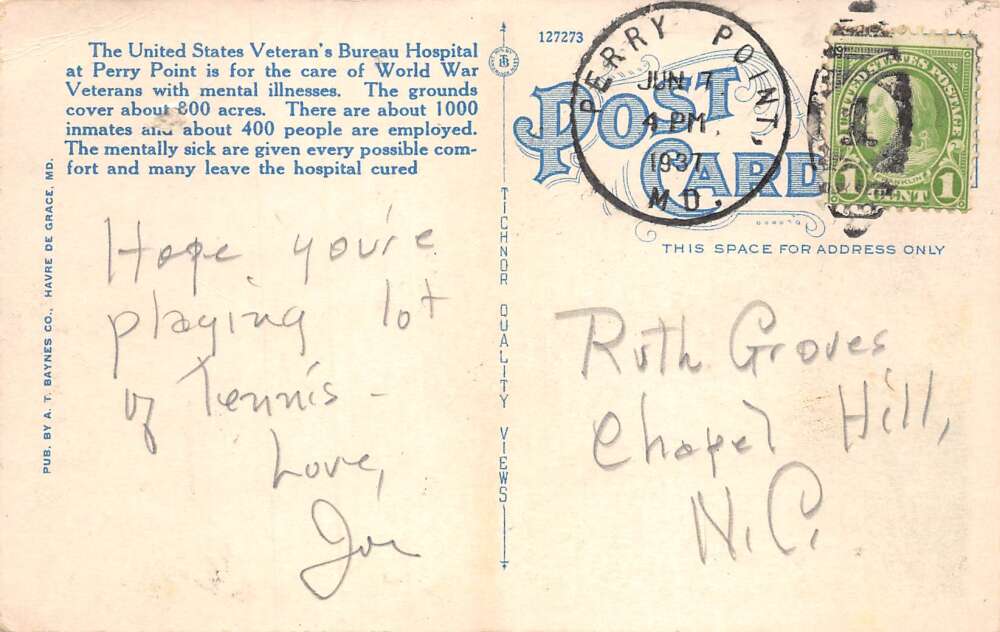 The United States Veteran's Bureau Hospital
at Perry Point is for the care of World War
Veterans with mental illnesses. The grounds
cover about 800 acres. There are about 1000
inmates and about 400 people are employed.
The mentally sick are given every possible com-
fort and many leave the hospital cured
PUB. BY A. T. BAYNES CO., HAVRE DE GRACE, MD.
Hope you're
playing lot
of Tennis -
Love,
Joe
TICHNOR QUALITY VIEWS
127273
POST
CARD
PERRY POINT,
JUN 7
4 PM
1937
MD.
UNITED STATES POSTAGE
FRANKLIN
1 CENT 1
THIS SPACE FOR ADDRESS ONLY
Ruth Groves
Chapel Hill,
N.C.